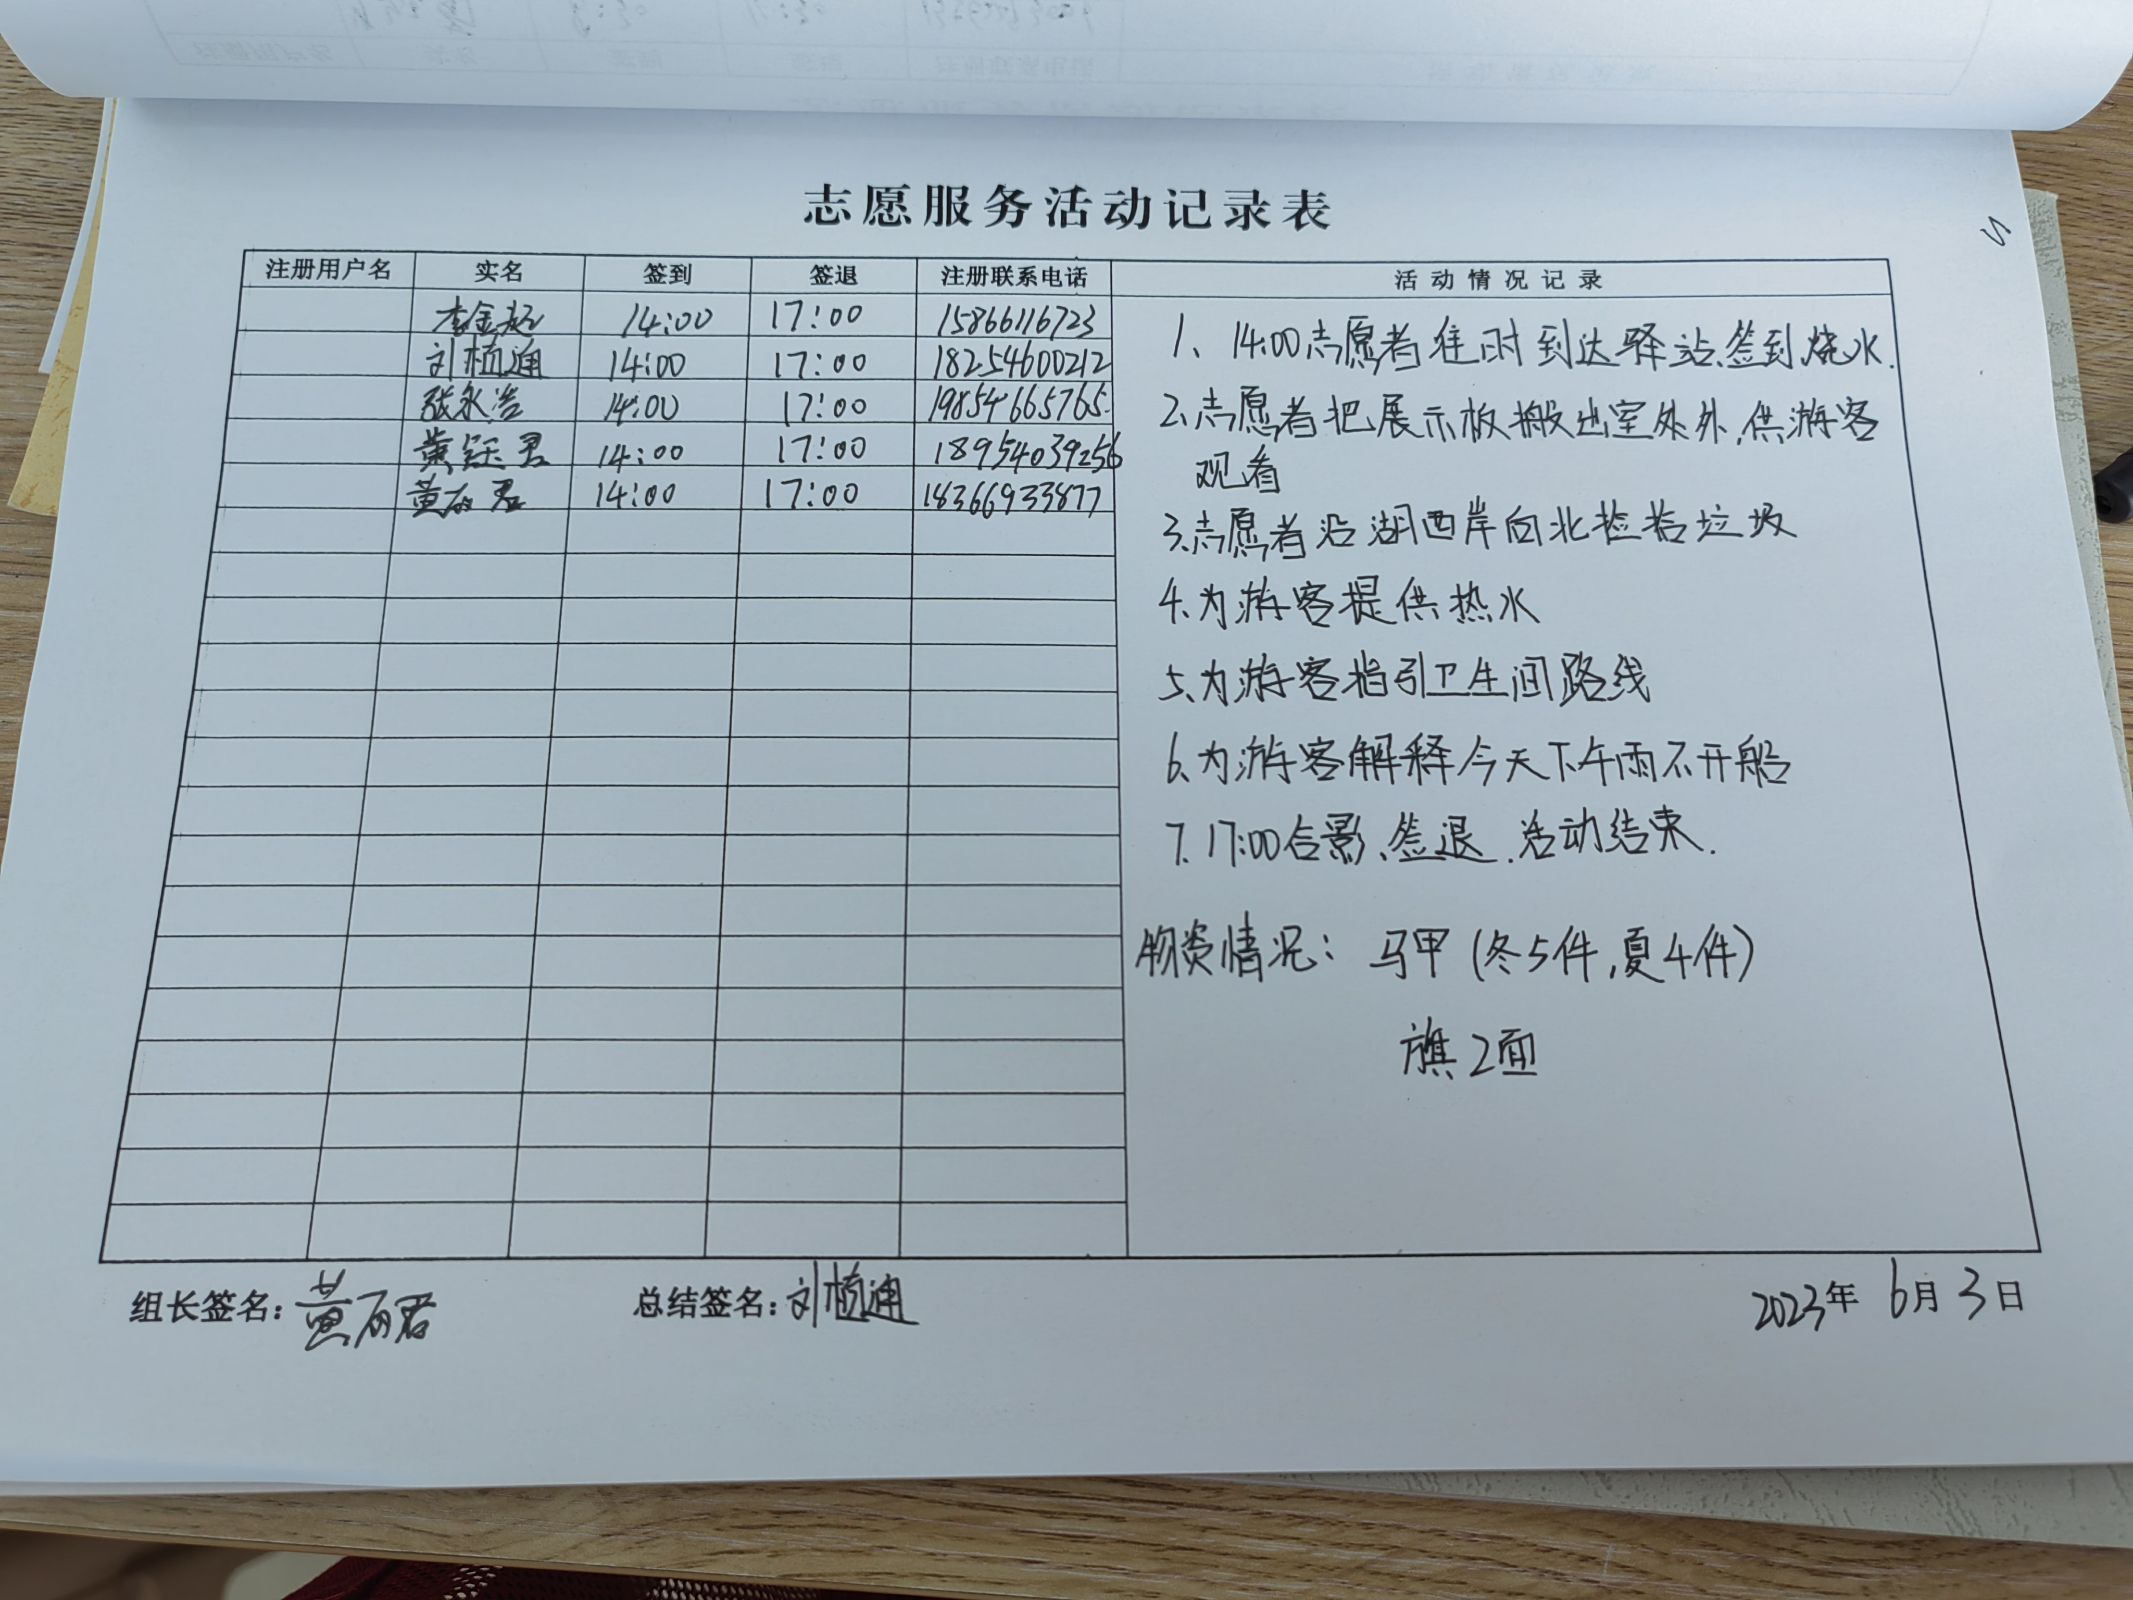 志愿服务活动记录表
注册用户名 实名 签到 签退 注册联系电话 活动情况记录
李金超 14:00 17:00 15866116723
刘植通 14:00 17:00 18254600212
张永浩 14:00 17:00 19854665765
黄钰君 14:00 17:00 18954039256
黄丽君 14:00 17:00 18366933877
1、14:00志愿者准时到达驿站、签到、烧水.
2、志愿者把展示板搬出室外外,供游客
观看
3、志愿者沿湖西岸向北捡拾垃圾
4、为游客提供热水
5、为游客指引卫生间路线
6、为游客解释今天下午雨不开船
7、17:00合影、签退.活动结束.
物资情况: 马甲(冬5件,夏4件)
旗2面
组长签名:黄丽君 总结签名:刘植通 2023年6月3日